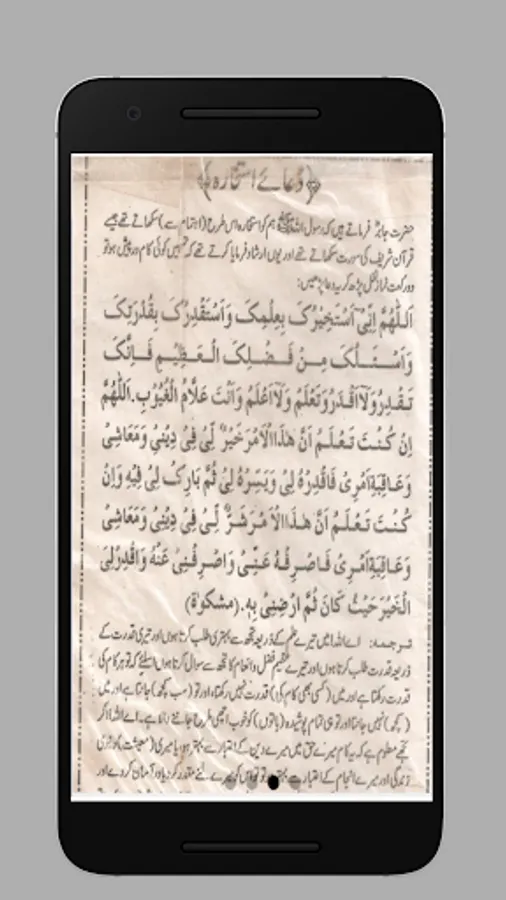 ﴿دُعائے استخارہ﴾
حضرت جابرؓ فرماتے ہیں کہ رسول اللہ ﷺ ہم کو استخارہ اس طرح (اہتمام سے) سکھاتے تھے جیسے
قرآن شریف کی سورت سکھاتے تھے اور یوں ارشاد فرمایا کرتے تھے کہ تمہیں کوئی کام درپیش ہو تو
دو رکعت نماز نفل پڑھ کر یہ دعا پڑھیں:
اَللّٰهُمَّ اِنِّیْ اَسْتَخِیْرُکَ بِعِلْمِکَ وَاَسْتَقْدِرُکَ بِقُدْرَتِکَ
وَاَسْئَلُکَ مِنْ فَضْلِکَ الْعَظِیْمِ فَاِنَّکَ
تَقْدِرُ وَلَآ اَقْدِرُ وَتَعْلَمُ وَلَآ اَعْلَمُ وَاَنْتَ عَلَّامُ الْغُیُوْبِ. اَللّٰهُمَّ
اِنْ کُنْتَ تَعْلَمُ اَنَّ هٰذَا الْاَمْرَ خَیْرٌ لِّیْ فِیْ دِیْنِیْ وَمَعَاشِیْ
وَعَاقِبَةِ اَمْرِیْ فَاقْدِرْهُ لِیْ وَیَسِّرْهُ لِیْ ثُمَّ بَارِکْ لِیْ فِیْهِ وَاِنْ
کُنْتَ تَعْلَمُ اَنَّ هٰذَا الْاَمْرَ شَرٌّ لِّیْ فِیْ دِیْنِیْ وَمَعَاشِیْ
وَعَاقِبَةِ اَمْرِیْ فَاصْرِفْهُ عَنِّیْ وَاصْرِفْنِیْ عَنْهُ وَاقْدِرْ لِیَ
الْخَیْرَ حَیْثُ کَانَ ثُمَّ ارْضِنِیْ بِهٖ. (مشکوٰة)
ترجمہ: اے اللہ! میں تیرے علم کے ذریعہ تجھ سے بہتری طلب کرتا ہوں اور تیری قدرت کے
ذریعہ قدرت طلب کرتا ہوں اور تیرے عظیم فضل و انعام کا تجھ سے سوال کرتا ہوں اسلئے کہ تو ہر کام کی
قدرت رکھتا ہے اور میں (کسی بھی کام کی) قدرت نہیں رکھتا، اور تو (سب کچھ) جانتا ہے اور میں
(کچھ) نہیں جانتا اور تو ہی تمام پوشیدہ (باتوں) کو خوب اچھی طرح جاننے والا ہے۔ اے اللہ! اگر
تجھے معلوم ہے کہ یہ کام میرے حق میں میرے دین کے اعتبار سے بہتر ہو، یا میری (معیشت)
زندگی اور میرے انجام کے اعتبار سے بہتر میرے لئے مقدر کر دے اور آسان کر دے اور